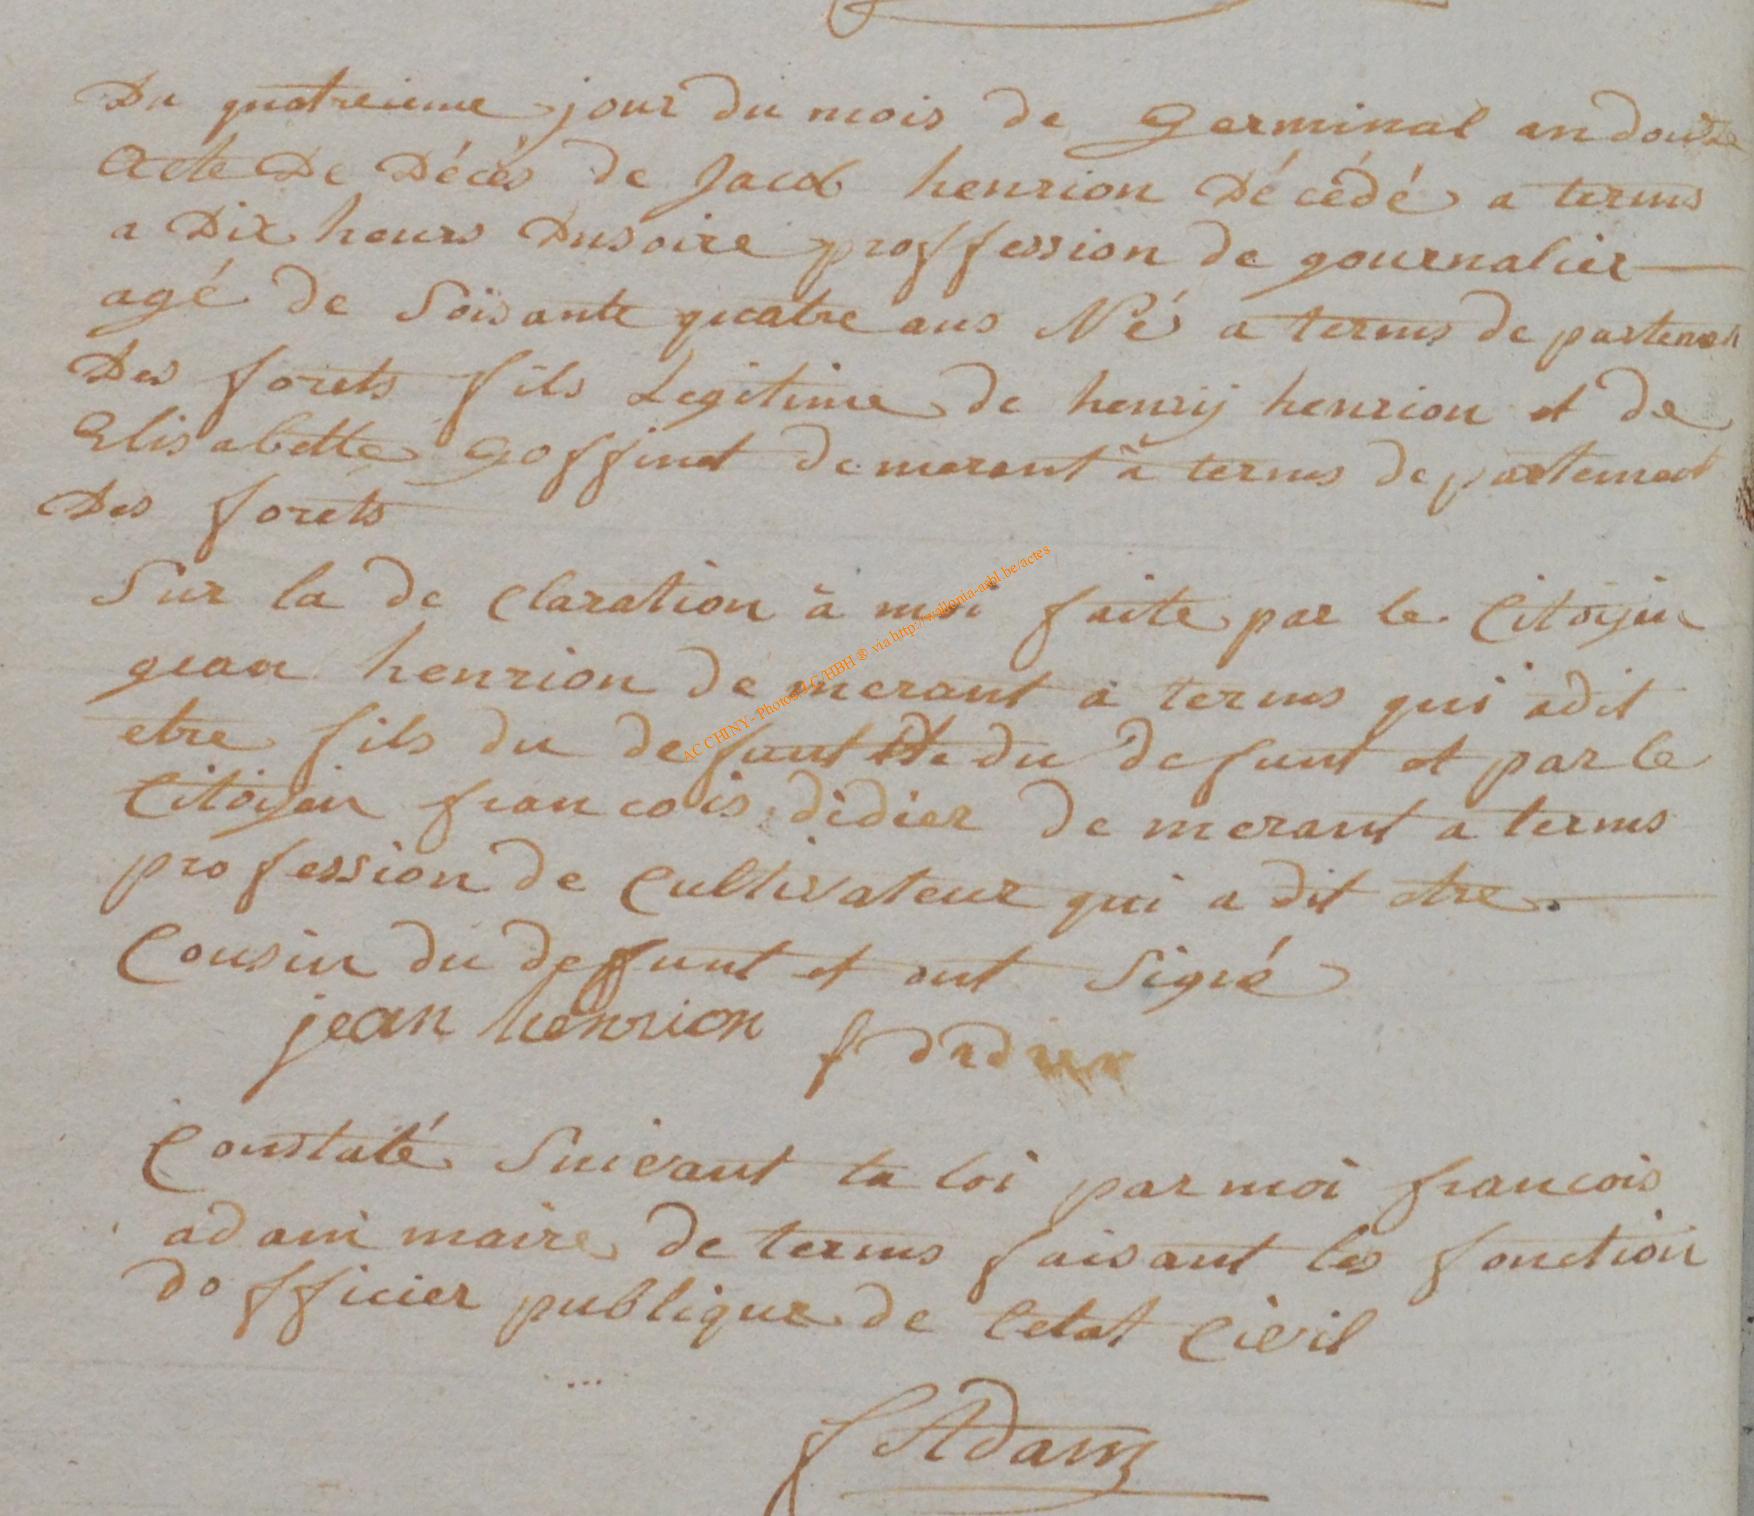 Du quatreieme jour du mois de Germinal an douze
Acte De Décés de Jacob henrion Décédé a terms
a Dix heurs Dusoire proffession de gournalier
agé de Soisante quatre ans Né a terms de partement
Des forets fils Legitime de henrij henrion et de
Elisabette goffinet demerant à terms de partement
Des forets
Sur la de claration à moi faite par le Citoijen
gean henrion de merant a terms qui adit
etre fils du defunt du defunt et par le
Citoijen francois didier de merant a terms
profession de Cultivateur qui a dit etre
Cousin du deffunt et ont Signé
jean henrion f didier
Constaté Suivant la loi par moi francois
adam maire de terms faisant les fonction
dofficier publique de Letat Civil
f Adam
AC CHINY - Photos FLC/HBH ® via http://wallonia-asbl.be/actes